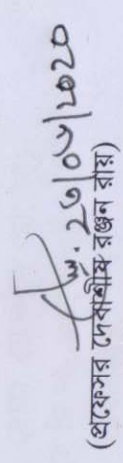 ২৬/০৮/২০২০
(প্রফেসর দেবাশীষ রঞ্জন রায়)